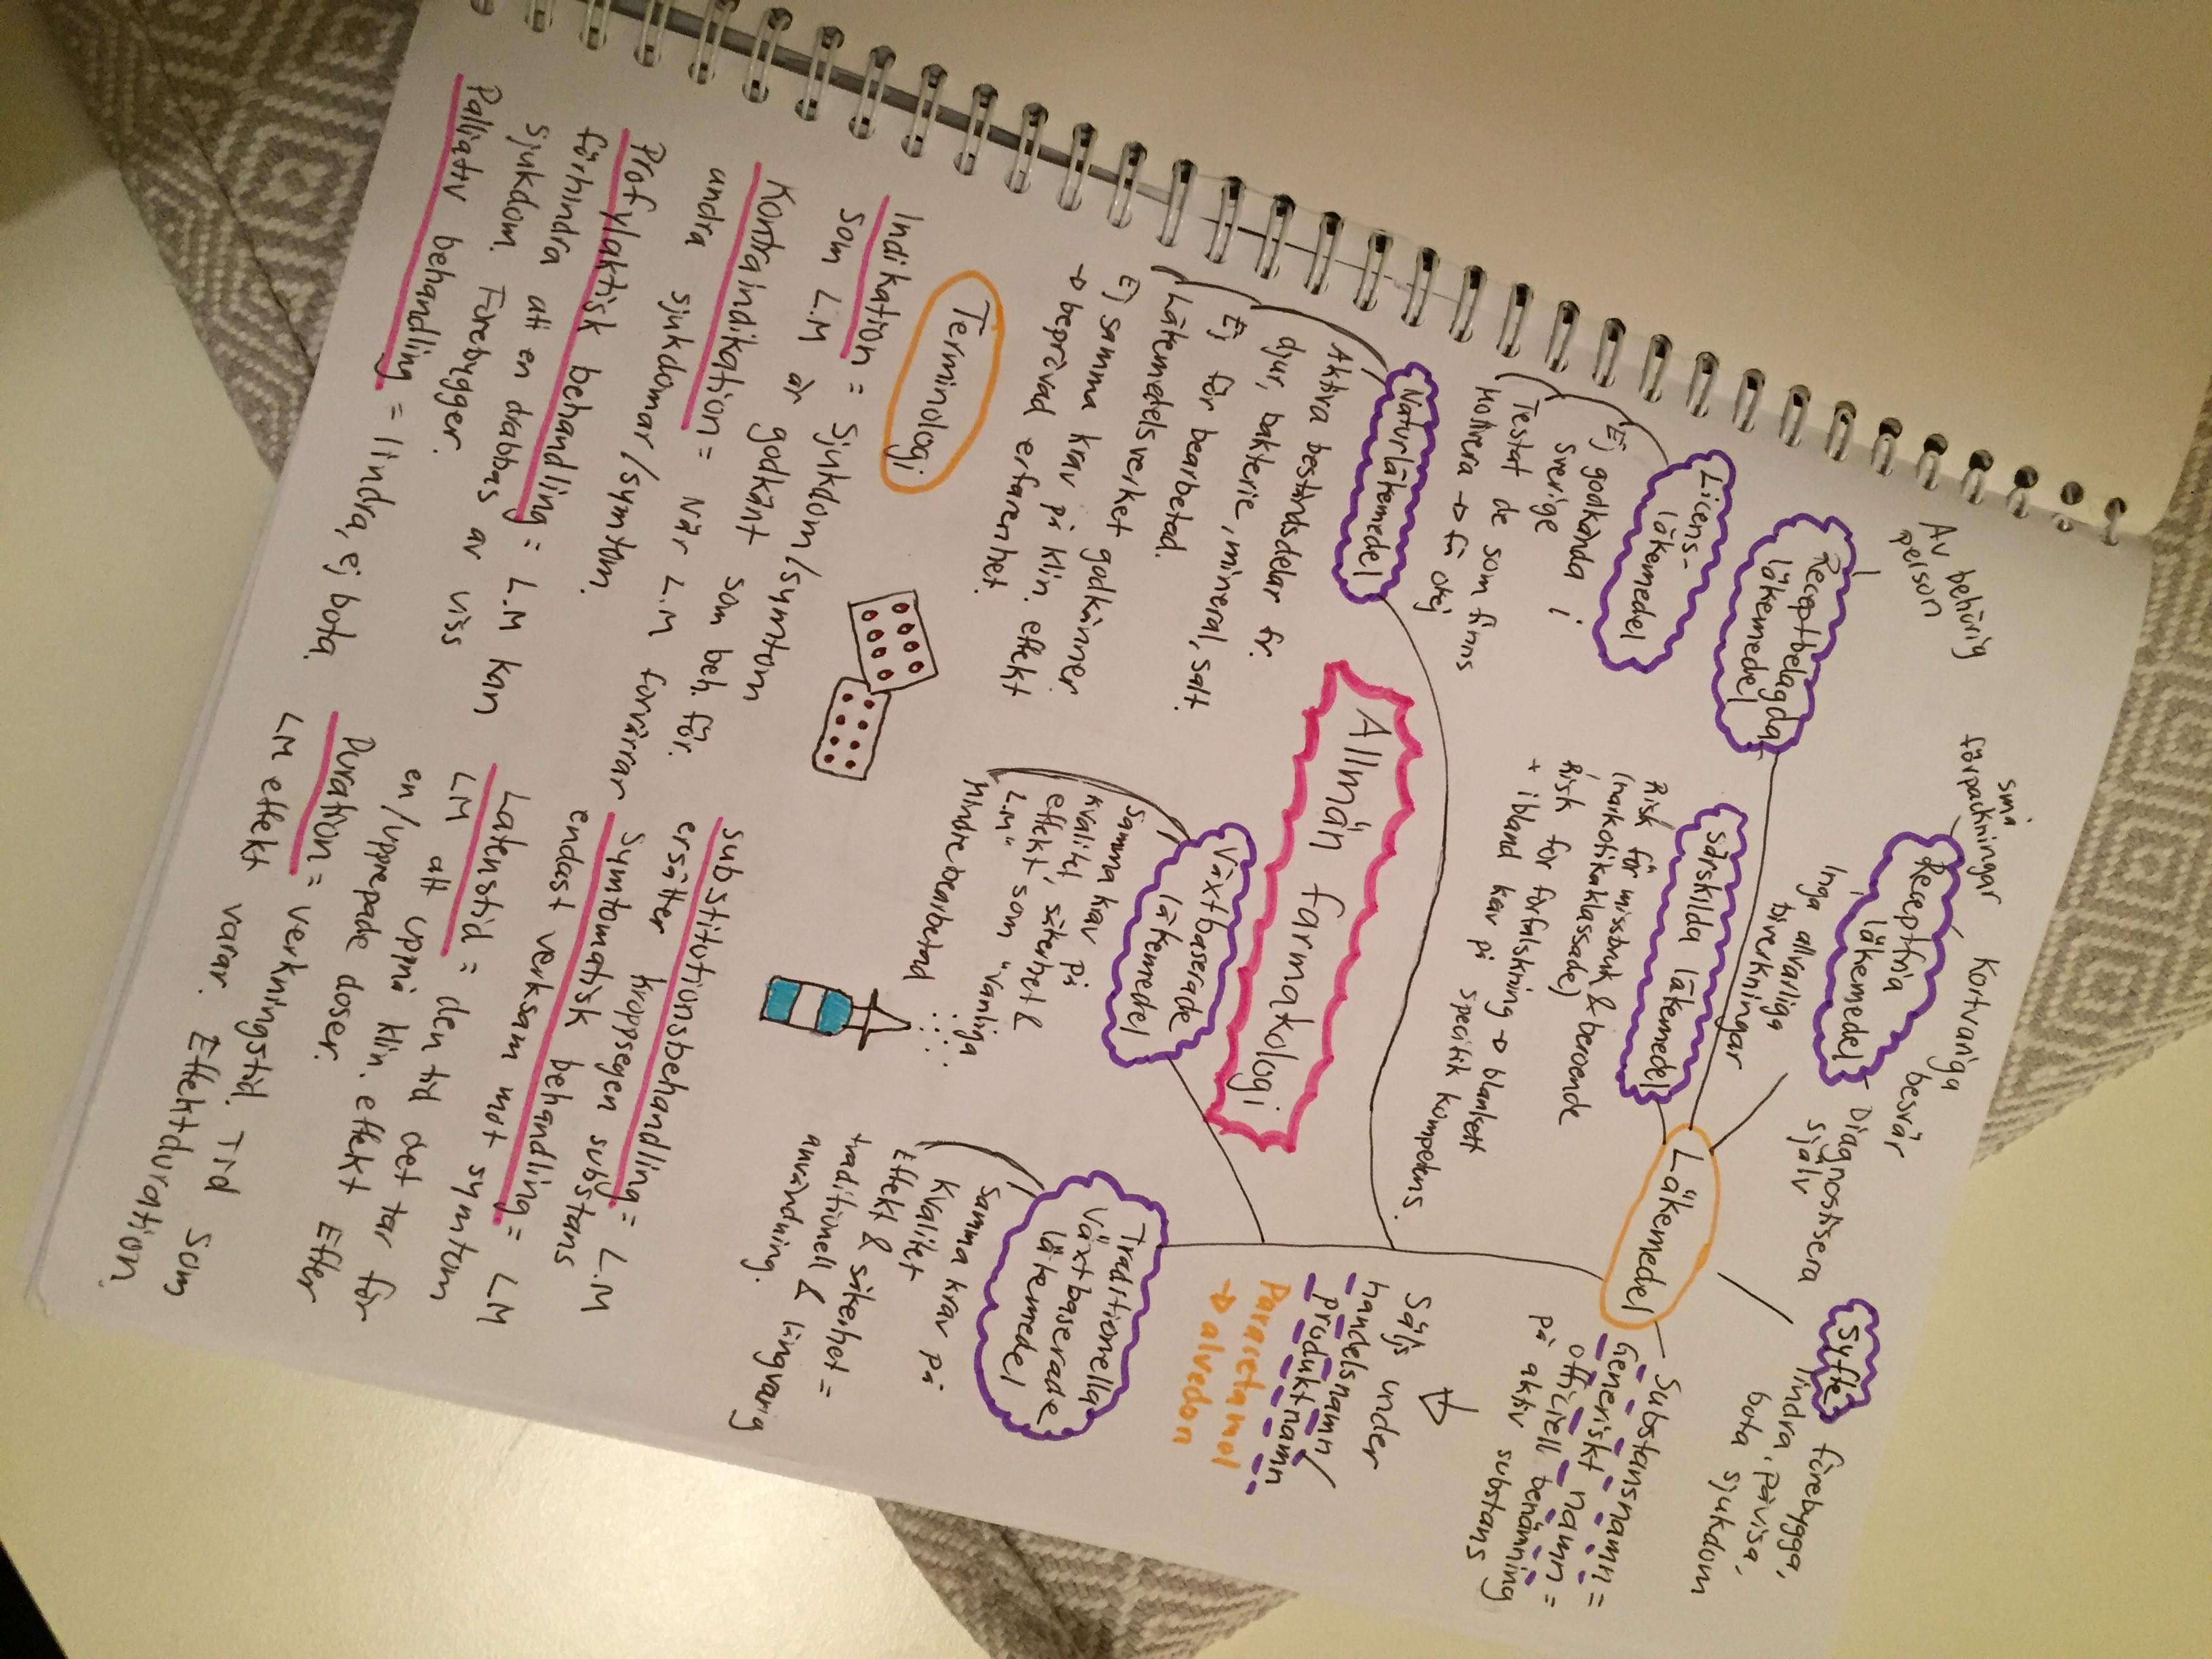 Allmän farmakologi
Läkemedel
Syfte
förebygga,
lindra, påvisa,
bota sjukdom
Substansnamn =
Generiskt namn =
officiell benämning
på aktiv substans
Säljs under
handelsnamn/
produktnamn
Paracetamol
→ alvedon
Receptfria
läkemedel
små
förpackningar
Kortvariga
besvär
Diagnostisera
själv
Inga allvarliga
biverkningar
Receptbelagda
läkemedel
Av behörig
person
Särskilda läkemedel
Risk för missbruk & beroende
(narkotikaklassade)
Risk för förfalskning → blankett
+ ibland krav på specifik kompetens.
Licens-
läkemedel
Ej godkända i
Sverige
Testat de som finns
Motivera → få okej
Naturläkemedel
Aktiva beståndsdelar fr.
djur, bakterie, mineral, salt
Ej för bearbetad.
Läkemedelsverket godkänner
Ej samma krav på klin. effekt
→ beprövad erfarenhet.
Växtbaserade
läkemedel
Samma krav på
kvalité, säkerhet &
effekt som "vanliga
L.M"
Mindre bearbetad
Traditionella
växtbaserade
läkemedel
Samma krav på
kvalitet
Effekt & säkerhet =
traditionell & långvarig
användning.
Terminologi
Indikation = Sjukdom/symtom
som L.M är godkänt som beh. för.
Kontraindikation = När L.M förvärrar
andra sjukdomar/symtom.
Profylaktisk behandling = L.M kan
förhindra att en drabbas av viss
sjukdom. Förebygger.
Palliativ behandling = lindra, ej bota.
Substitutionsbehandling = L.M
ersätter kroppsegen substans
Symtomatisk behandling = LM
endast verksam mot symtom
Latenstid = den tid det tar för
LM att uppnå klin. effekt Efter
en/upprepade doser.
Duration = verkningstid. Tid som
LM effekt varar. Effektduration.